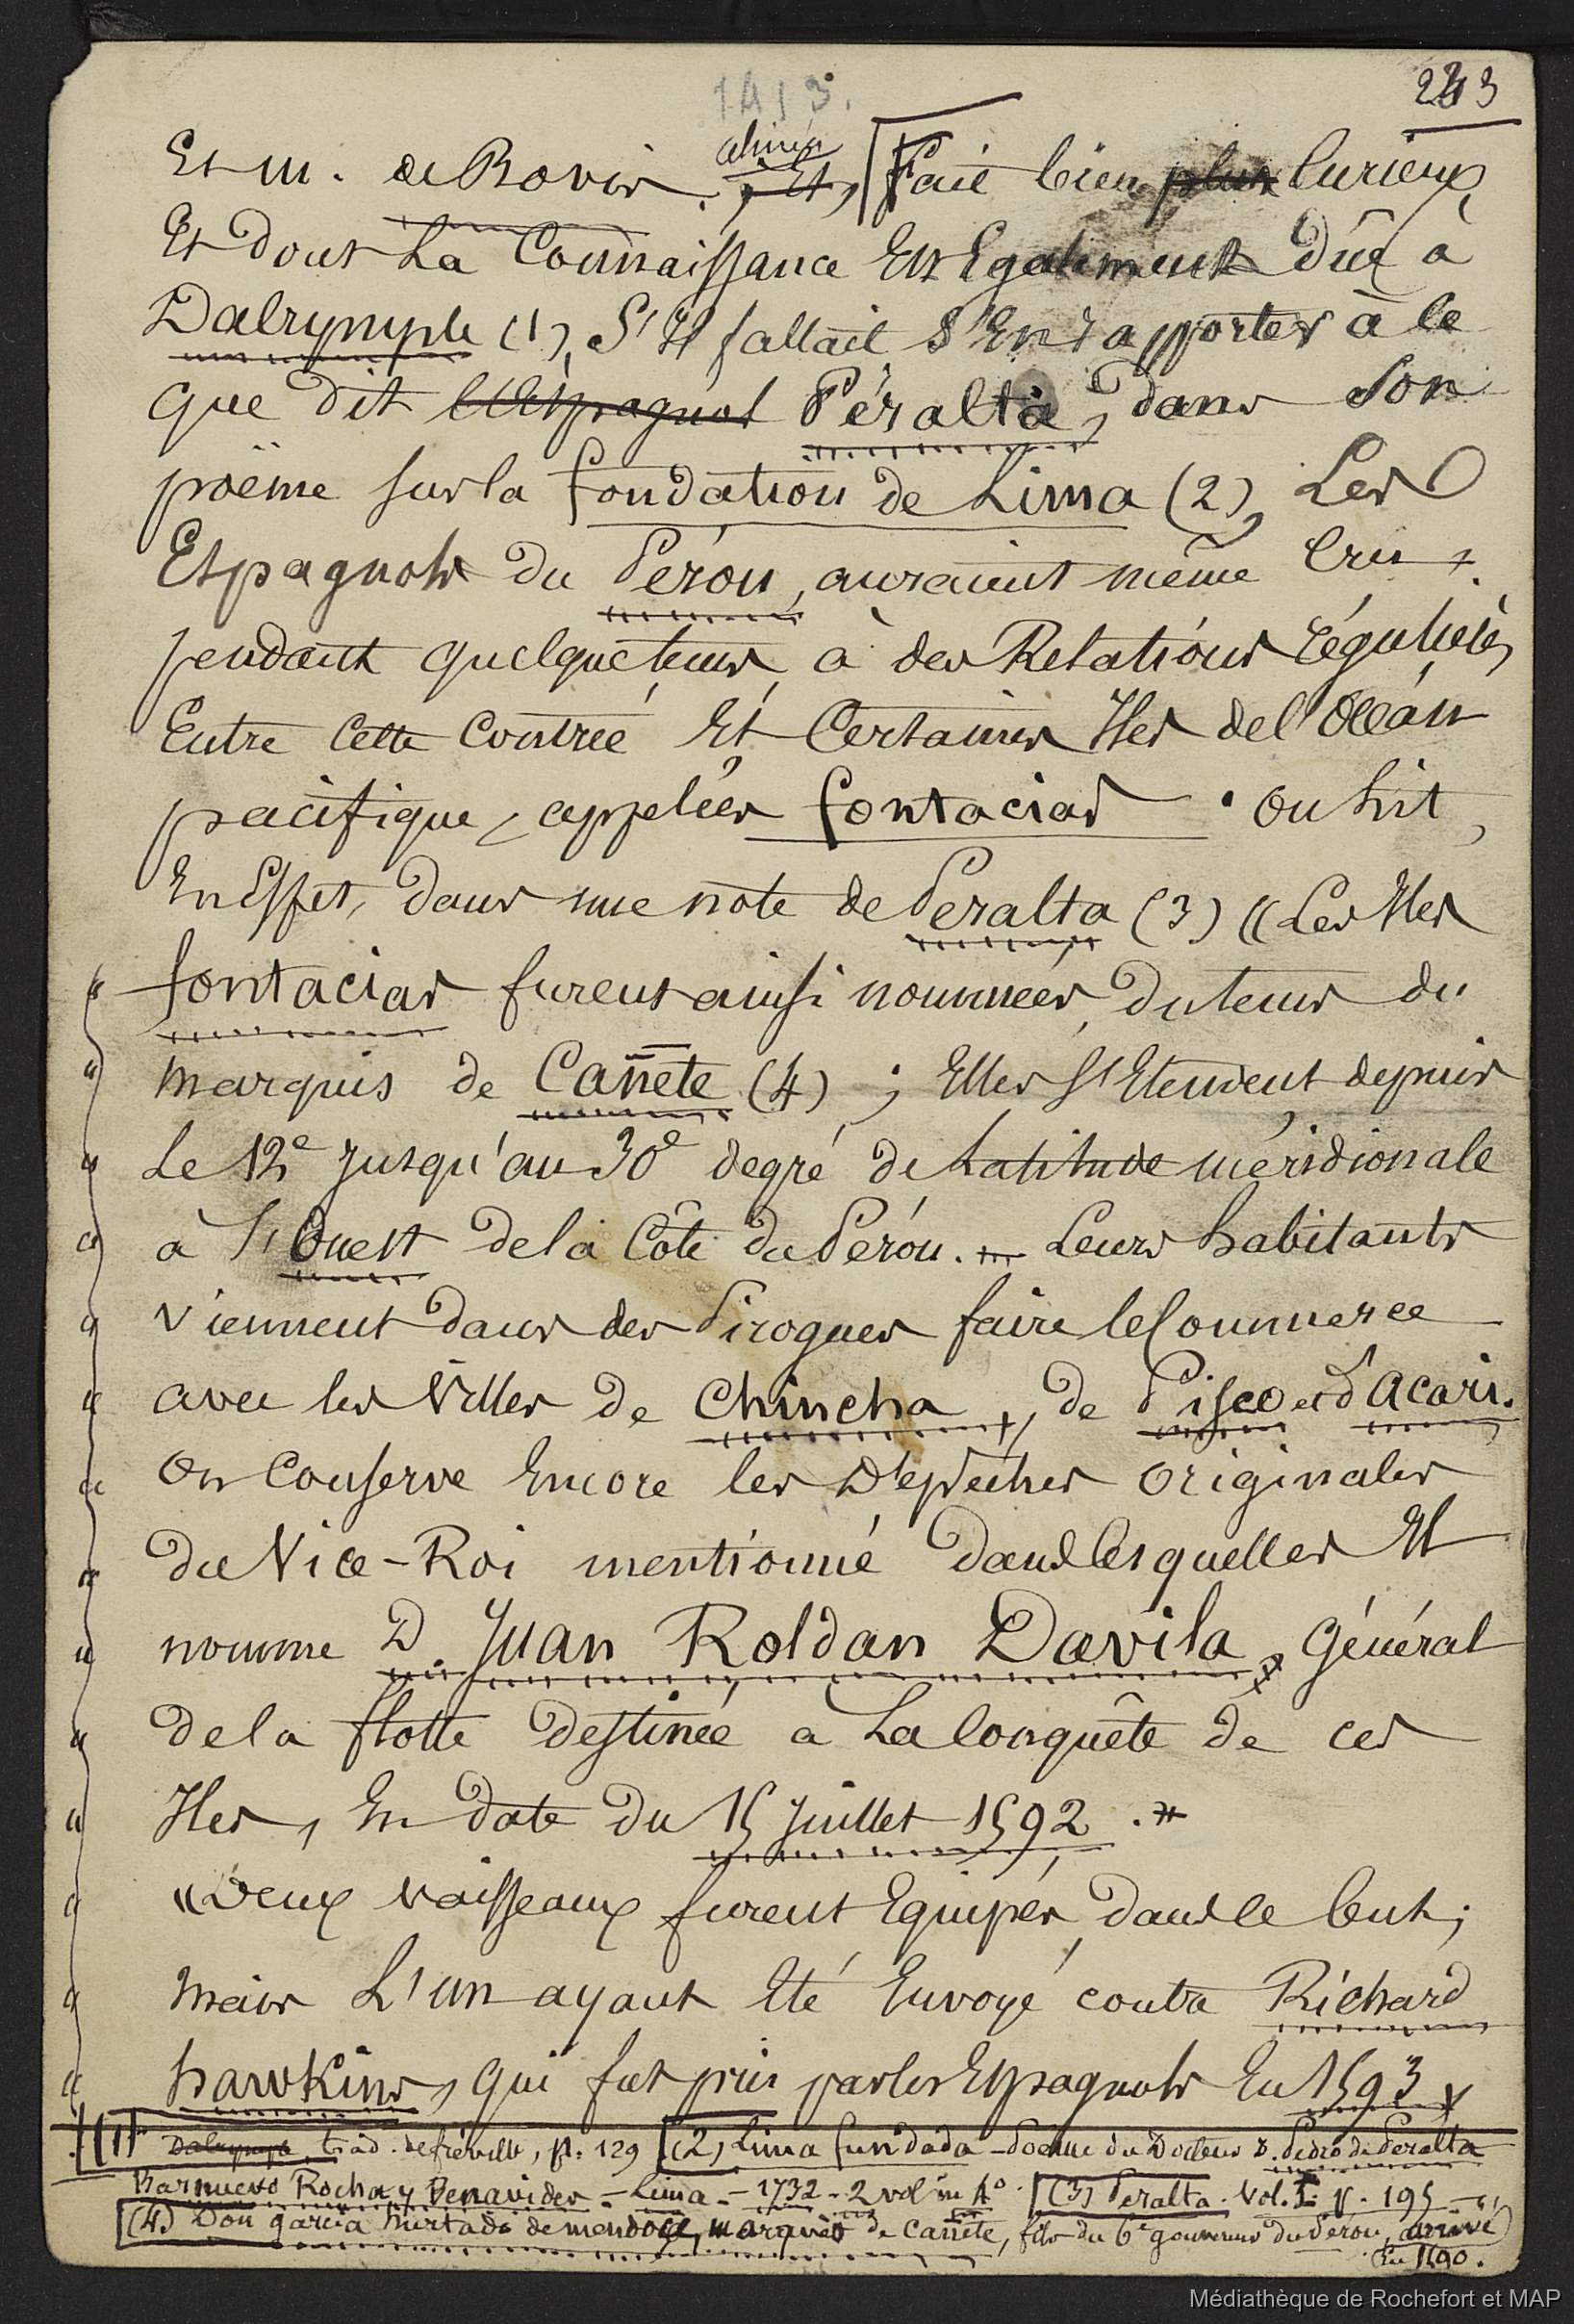 1413.
243
Et m. de Bovis. , Et, Fait bien plus Curieux,
Et dont La Connaissance Est Egalement Dûe à
Dalrymple (1), S'Il fallait S'En rapporter à ce
que dit l'Espagnol Péralta, dans Son
poëme sur la fondation de Lima (2), Les
Espagnols du Pérou, auraient même Cru
pendant quelque tems, à des Relations régulières,
Entre cette Contrée Et Certaines Iles de l'Océan
pacifique, appelées fontacias. On lit,
En Effet, dans une note de Peralta (3) « Les Iles
" fontacias furent ainsi nommées, du tems du
" marquis de Cañete (4) ; Elles S'Etendent depuis
" Le 12e jusqu'au 30e degré de Latitude méridionale
" à l'Ouest de la Côte du Pérou. — Leurs habitants
" viennent dans des Pirogues faire le Commerce
" avec les Villes de Chincha, de Pisco et d'Acari.
" On Conserve Encore les Dépêches originales
" du Vice-Roi mentionné dans lesquelles Il
" nomme D. Juan Roldan Davila, Général
" de la flotte destinée à La Conquête de ces
" Iles, En date du 15 Juillet 1592.
" « Deux vaisseaux furent Equipés, dans le but ;
" mais L'un ayant Eté Envoyé contre Richard
" hawkins, qui fut pris par les Espagnols En 1593,
(1) Dalrymple, trad. de fréville, p. 129 (2) Lima fundada - Poëme du Docteur D. Pedro de Peralta
Barnuevo Rocha y Benavides - Lima - 1732 - 2 vol in 4° (3) Peralta. Vol. I. p. 195
(4) Don garcia hurtado de mendoce, marquis de Cañete, fils du 6e gouverneur du Pérou, arrivé
En 1590.
Médiathèque de Rochefort et MAP